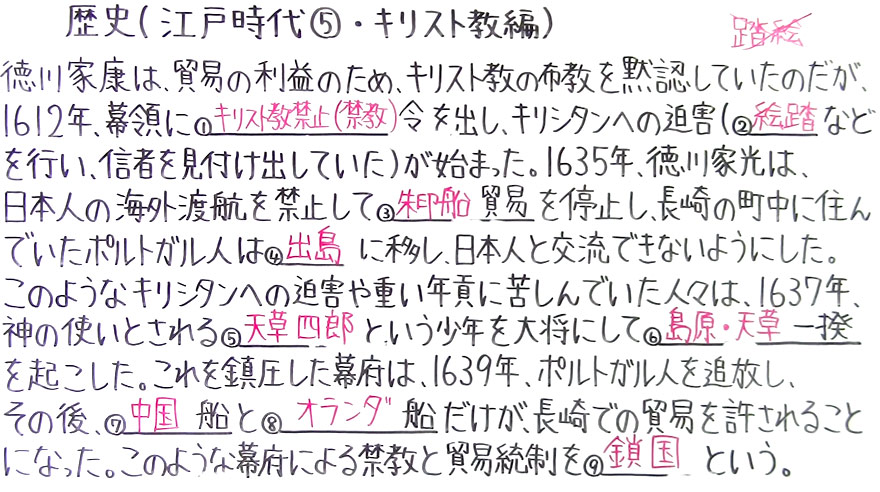 歴史(江戸時代⑤・キリスト教編)
踏絵
徳川家康は、貿易の利益のため、キリスト教の布教を黙認していたのだが、
1612年、幕領に①キリスト教禁止(禁教)令を出し、キリシタンへの迫害(②絵踏など
を行い、信者を見付け出していた)が始まった。1635年、徳川家光は、
日本人の海外渡航を禁止して③朱印船貿易を停止し、長崎の町中に住ん
でいたポルトガル人は④出島に移し、日本人と交流できないようにした。
このようなキリシタンへの迫害や重い年貢に苦しんでいた人々は、1637年、
神の使いとされる⑤天草四郎という少年を大将にして⑥島原・天草一揆
を起こした。これを鎮圧した幕府は、1639年、ポルトガル人を追放し、
その後、⑦中国船と⑧オランダ船だけが、長崎での貿易を許されること
になった。このような幕府による禁教と貿易統制を⑨鎖国という。